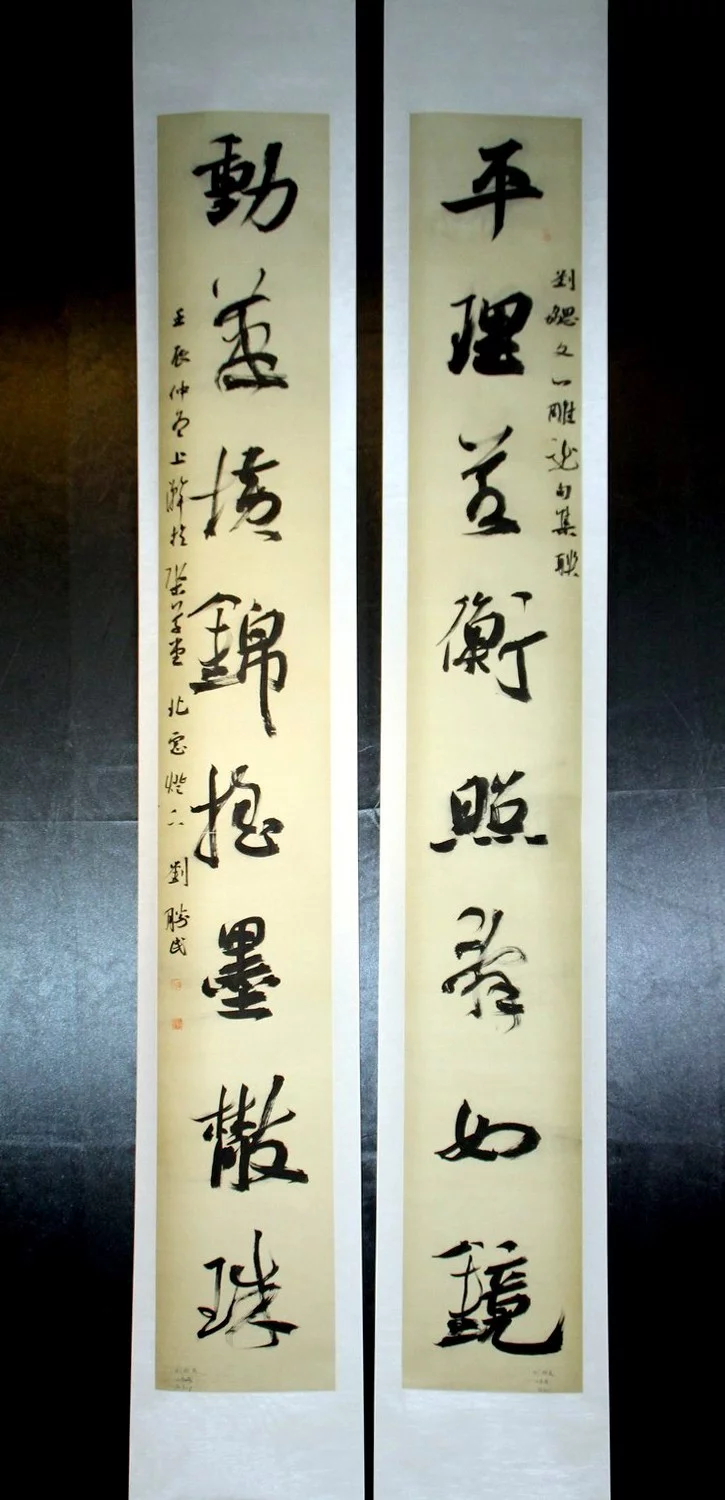 平理若衡照辭如鏡
劉勰文心雕龍句集聯
動筆橫錦搖墨散珠
壬辰仲 上澣於 草堂 北窗燈下 劉勝民